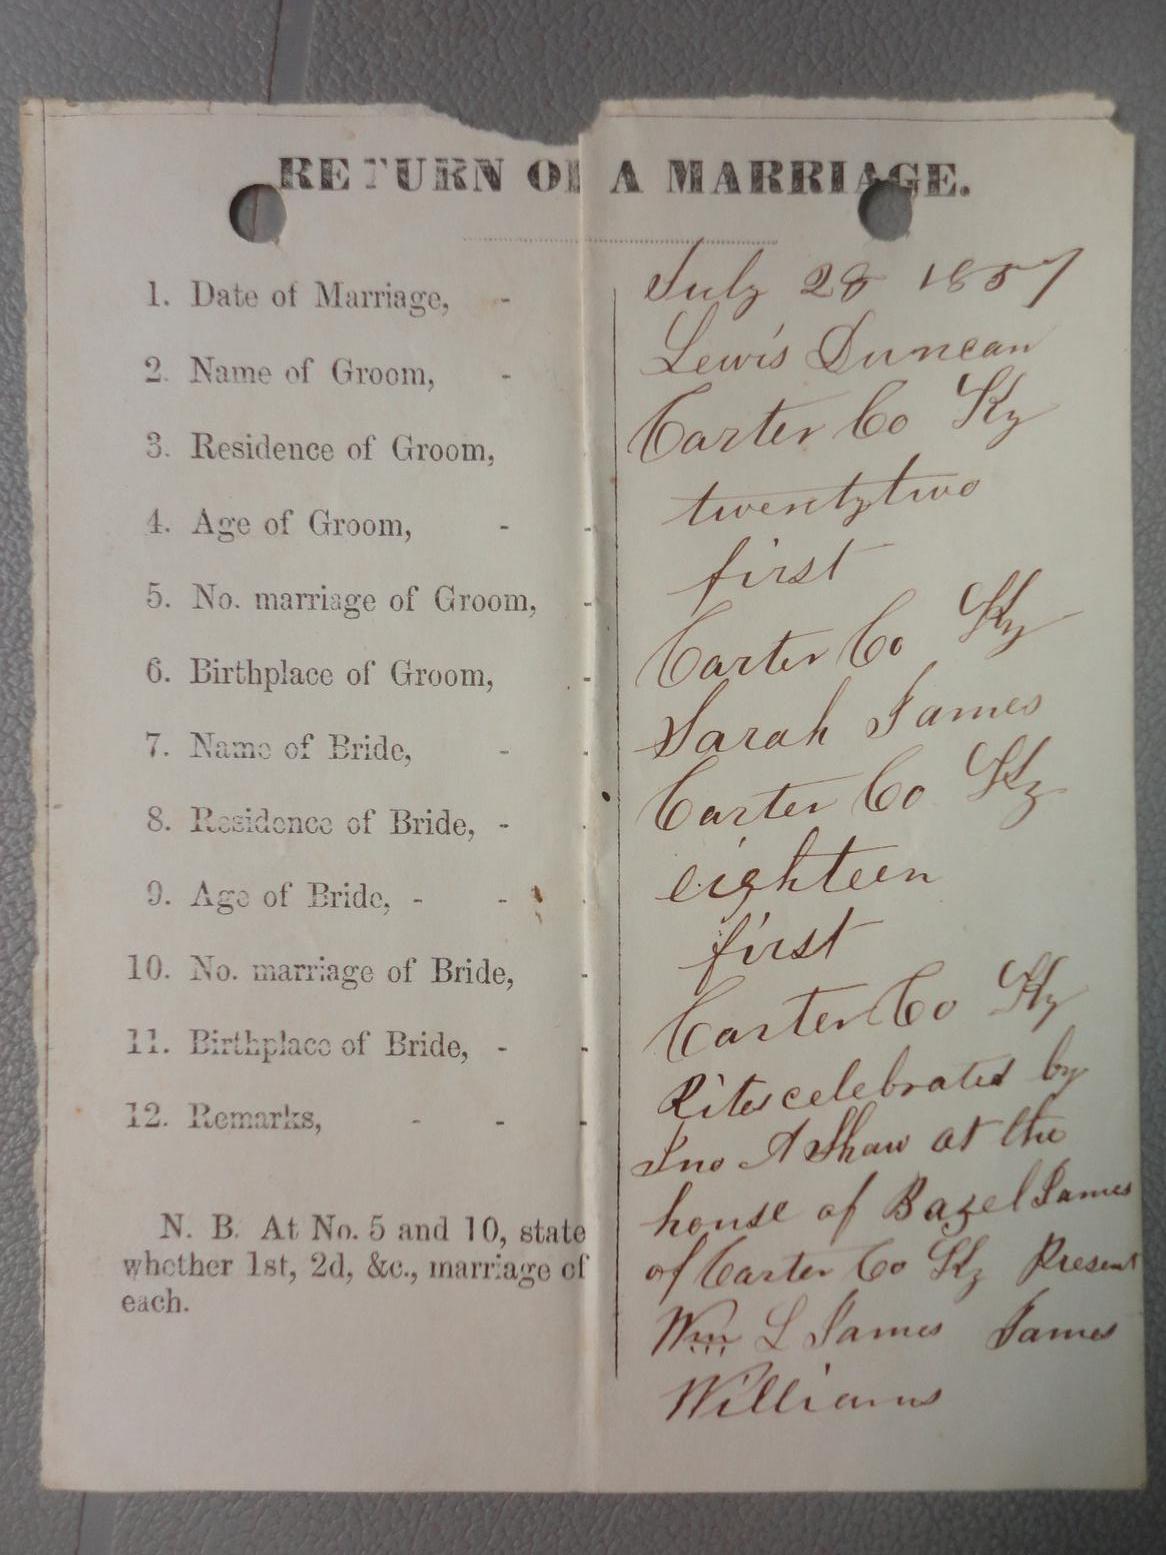 RETURN OF A MARRIAGE.
1. Date of Marriage, - July 28 1857
2. Name of Groom, - Lewis Duncan
3. Residence of Groom, Carter Co Ky
4. Age of Groom, - - twentytwo
5. No. marriage of Groom, - first
6. Birthplace of Groom, - Carter Co Ky
7. Name of Bride, - - Sarah James
8. Residence of Bride, - - Carter Co Ky
9. Age of Bride, - - - eighteen
10. No. marriage of Bride, - first
11. Birthplace of Bride, - - Carter Co Ky
12. Remarks, - - - Rites celebrated by
Jno A Shaw at the
house of Bazel James
of Carter Co Ky Present
Wm L James James
Williams
N. B. At No. 5 and 10, state
whether 1st, 2d, &c., marriage of
each.